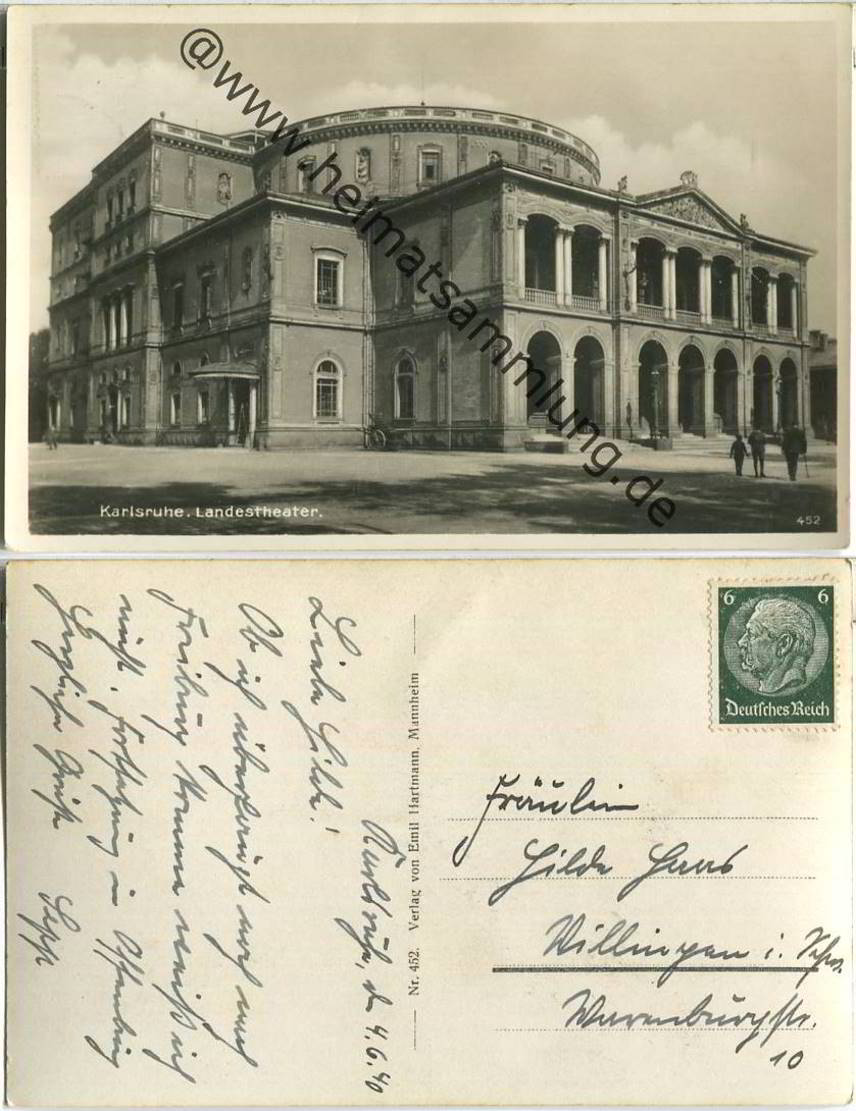 @www.heimatsammlung.de
Karlsruhe. Landestheater.
452
6 6
Deutsches Reich
Nr. 452. Verlag von Emil Hartmann, Mannheim
Karlsruhe, den 4.6.40
Liebe Hilde!
Ob ich überhaupt noch nach
Freiburg komme weiß ich
nicht. Fortsetzung in Offenburg
Herzliche Grüße Sepp
Fräulein
Hilde Haas
Villingen i. Schw.
Warenburgstr.
10